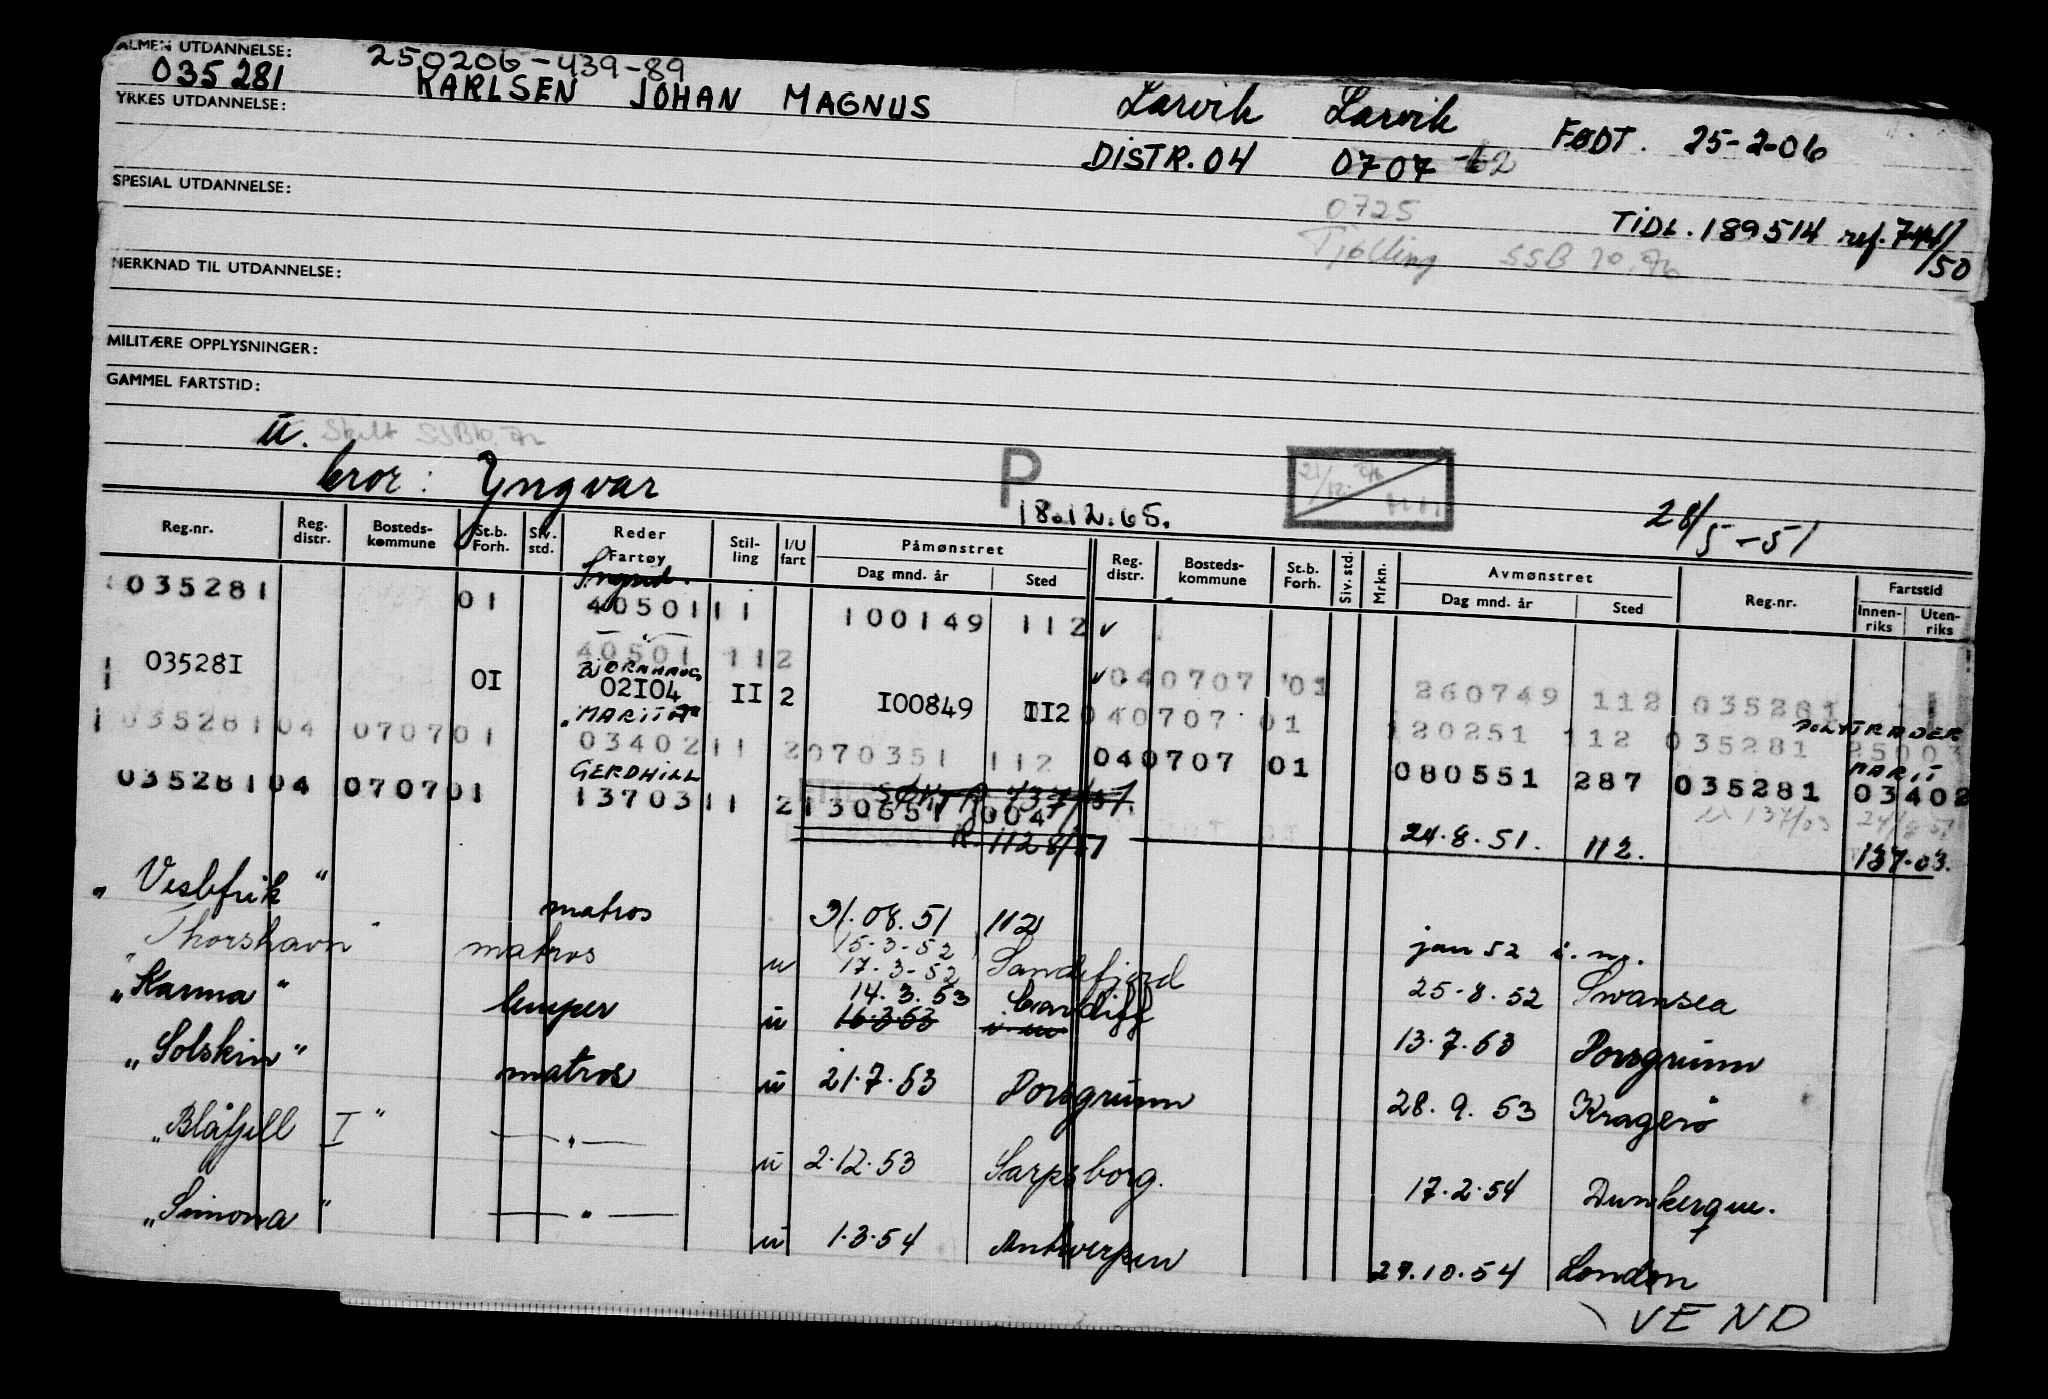 ALMEN UTDANNELSE: 250206-439-89
035281 KARLSEN JOHAN MAGNUS Larvik Larvik FØDT. 25-2-06
YRKES UTDANNELSE:
DISTR. 04 0707
0725
SPESIAL UTDANNELSE:
TIDL. 189514 ref. 744/50
Tjølling SSB
MERKNAD TIL UTDANNELSE:
MILITÆRE OPPLYSNINGER:
GAMMEL FARTSTID:
u.
bror: Yngvar P
18.12.65. 28/5-51
Reg.nr. Reg. distr. Bosteds-kommune St.b. Forh. Siv. std. Reder Fartøy Stil-ling I/U fart Påmønstret Dag mnd. år Sted Reg. distr. Bosteds-kommune St.b. Forh. Siv. std. Mrkn. Avmønstret Dag mnd. år Sted Reg.nr. Fartstid Innen-riks Uten-riks
035281 01 40501 11 100149 112 ✓
40501 112 040707 01 260749 112 035281
BJØRNHAUG
035281 01 02104 11 2 100849 112 040707 01 120251 112 035281 25003
"MARIT II" POLYTRADER
035281 04 0707 01 03402 11 2 070351 112 040707 01 080551 287 035281 03402
GERDHILL MARIT
035281 04 0707 01 13703 11 2 130651 004 24.8.51. 112. 137.03.
R. 1128/51
"Vesbfrik" matros 31.08.51 112 jan 52 i. no.
"Thorshavn" matros u 15-3-52 17.3-52 Sandefjord 25-8.52 Swansea
"Karma" lemper u 14.3.53 16.3.53 Cardiff 13.7.53 Porsgrunn
"Solskin" matros u 21.7.53 Porsgrunn 28.9.53 Kragerø
"Blåfjell I" —"— u 2.12.53 Sarpsborg. 17.2.54 Dunkerque.
"Simona" —"— u 1.3.54 Antwerpen 27.10.54 London
VEND